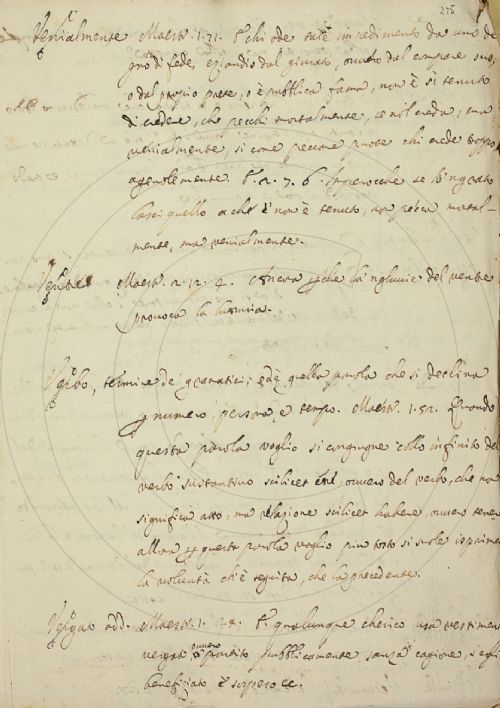 275
Venialmente Maestr. 1. 71. E chi ode tale impedimento da uno de
gno di fede, eziandio dal giurato, ovvero dal compare suo,
o dal proprio prete, o è pubblica fama, non è sì tenuto
di credere, che pecchi mortalmente, se nol creda; ma
venialmente, si come peccare puote chi crede troppo
agevolemente. E. 2. 7. 6. Imperocchè se lo'ngrato
lasci quello a che e' non è tenuto, non pecca mortal-
mente, ma venialmente.
Ventre Maestr. 2. 12. 4. Ancora perchè la'ngluvie del ventre
provoca la lussuria.
Verbo, termine de' gramatici; ed è quella parola che si declina
per numero, persona, e tempo. Maestr. 1. 52. Quando
questa parola voglio si congiugne collo infinito del
verbo sustantivo scilicet esse, ovvero del verbo, che non
significa atto, ma relazione scilicet habere, ovvero tenere
allora per questa parola voglio più tosto si suole isprimere
la volontà ch'è seguita, che la precedente.
Vergato add. Maestr. 1. 24. E qualunque cherico usa vestimen
vergati ovvero partito pubblicamente, sanza cagione, s'egli
beneficiato è sospeso ec.